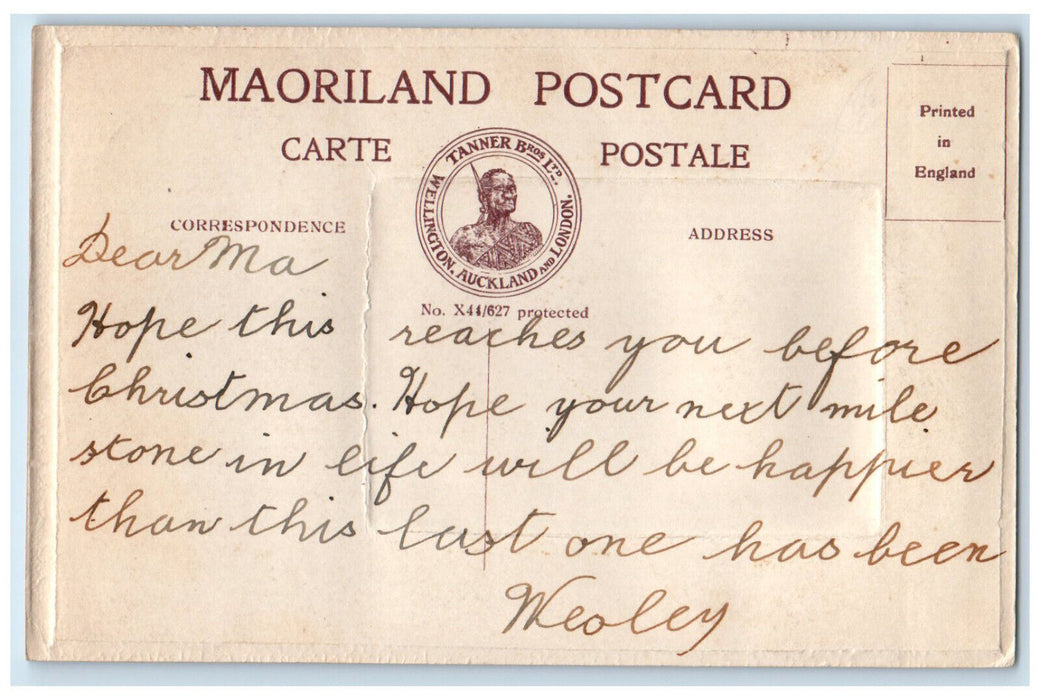 MAORILAND POSTCARD
CARTE POSTALE
TANNER BROS LTD. WELLINGTON. AUCKLAND AND LONDON.
Printed
in
England
CORRESPONDENCE
ADDRESS
No. X44/627 protected
Dear Ma
Hope this reaches you before
Christmas. Hope your next mile
stone in life will be happier
than this last one has been
Wesley